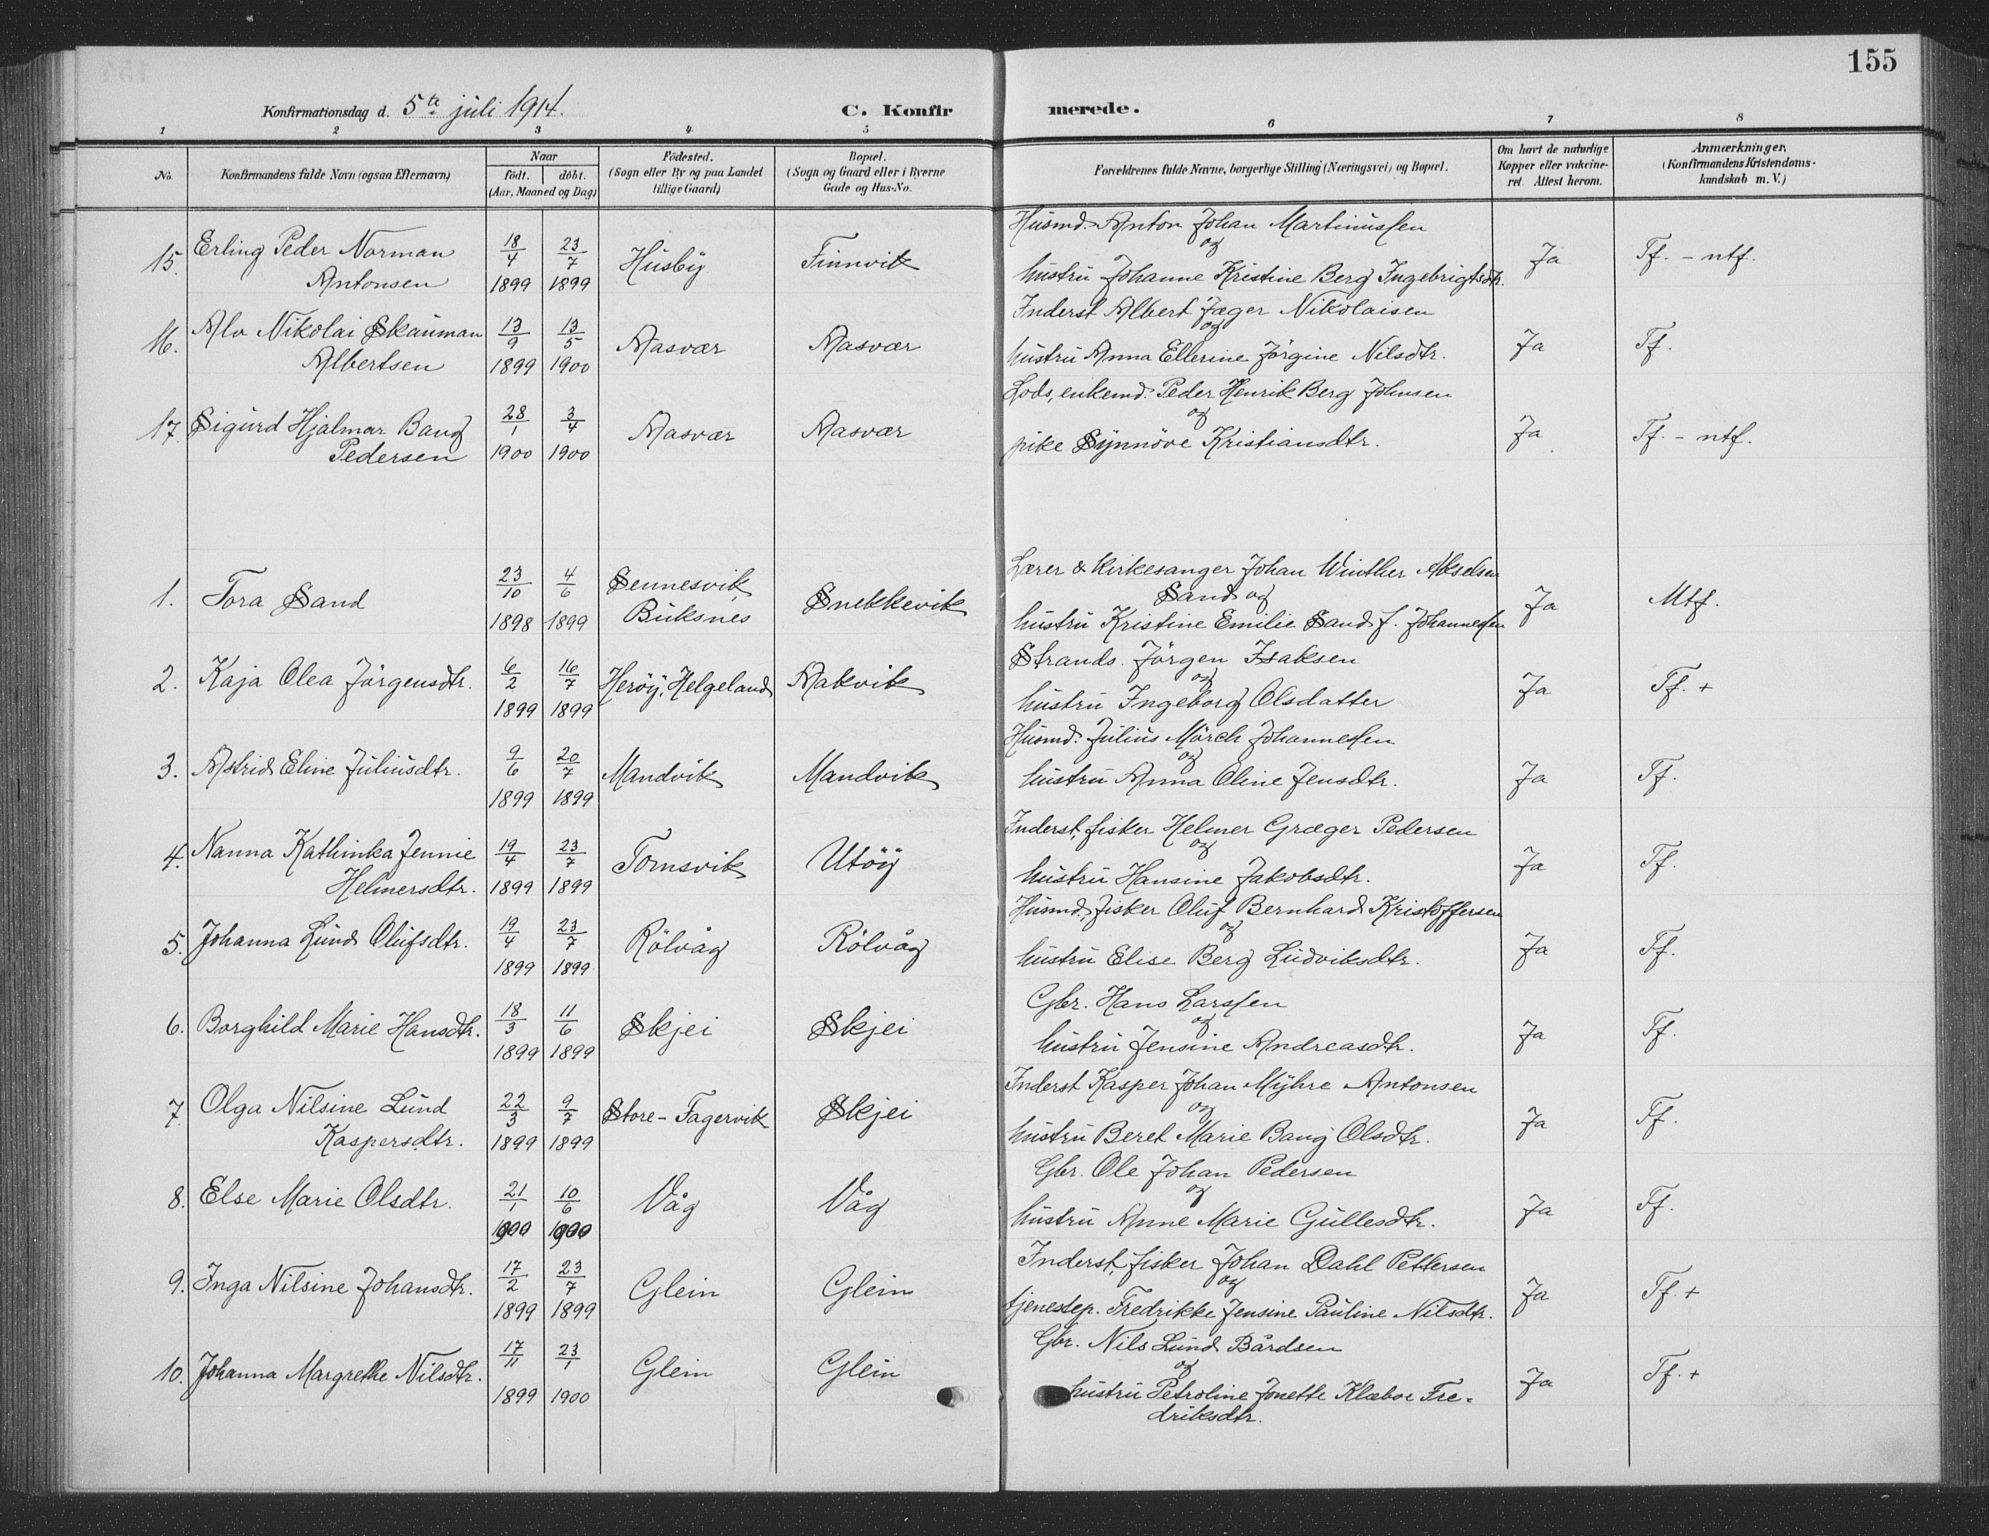 155
Konfirmationsdag d. 5te juli 1914. C. Konfirmerede.
1 2 3 4 5 6 7 8
No. Konfirmandens fulde Navn (ogsaa Efternavn) Naar födt. döbt. (Aar, Maaned og Dag) Födested. (Sogn eller By og paa Landet tillige Gaard) Bopæl. (Sogn og Gaard eller i Byerne Gade og Hus-No. Forældrenes fulde Navne, borgerlige Stilling (Næringsvei) og Bopæl. Om havt de naturlige Kopper eller vakcineret. Attest herom. Anmærkninger. (Konfirmandens Kristendomskundskab m. V.)
15. Erling Peder Norman Antonsen 18/4 1899 23/7 1899 Husby Finnvik Husmd. Anton Johan Martinussen og hustru Johanne Kristine Berg Ingebrigtsdtr. Ja Tf. - ntf.
16. Alv Nikolai Skauman Albertsen 13/9 1899 13/5 1900 Aasvær Aasvær Inderst Albert Jæger Nikolaisen og hustru Anna Ellerine Jörgine Nilsdtr. Ja Tf.
17. Sigurd Hjalmar Bang Pedersen 28/1 1900 3/4 1900 Aasvær Aasvær Lods, enkemd. Peder Henrik Berg Johnsen og pike Synnöve Kristiansdtr. Ja Tf. - ntf.
1. Tora Sand 23/10 1898 4/6 1899 Sennesvik Buksnes Snekkevik Lærer & Kirkesanger Johan Winther Akselsen Sand og hustru Kristine Emilie Sand f. Johannessen Ja Mtf.
2. Kaja Olea Jörgensdtr. 6/2 1899 16/7 1899 Heröy, Helgeland Aakvik Strands. Jörgen Isaksen og hustru Ingeborg Olsdatter Ja Tf. +
3. Astrid Eline Juliusdtr. 9/6 1899 20/7 1899 Mandvik Mandvik Husmd. Julius Mörch Johannessen og hustru Anna Oline Jensdtr. Ja Tf.
4. Nanna Kathinka Jennie Helmersdtr. 19/4 1899 23/7 1899 Tomsvik Utöy Inderst, fisker Helmer Græger Pedersen og hustru Hansine Jakobsdtr. Ja Tf.
5. Johanna Lund Olufsdtr. 19/4 1899 23/7 1899 Rölvåg Rölvåg Husmd., fisker Oluf Bernhard Kristoffersen og hustru Elise Berg Ludviksdtr. Ja Tf.
6. Borghild Marie Hansdtr. 18/3 1899 11/6 1899 Skjei Skjei Gbr. Hans Larssen og hustru Jensine Andreasdtr. Ja Tf.
7. Olga Nilsine Lund Kaspersdtr. 22/3 1899 9/7 1899 Store-Fagervik Skjei Inderst Kasper Johan Myhre Antonsen og hustru Beret Marie Bang Olsdtr. Ja Tf.
8. Else Marie Olsdtr. 21/1 1900 10/6 1900 Våg Våg Gbr. Ole Johan Pedersen og hustru Anne Marie Gullesdtr. Ja Tf.
9. Inga Nilsine Johansdtr. 17/2 1899 23/7 1899 Glein Glein Inderst, fisker Johan Dahl Pettersen og tjenestep. Fredrikke Jensine Pauline Nilsdtr. Ja Tf. +
10. Johanna Margrethe Nilsdtr. 17/11 1899 23/1 1900 Glein Glein Gbr. Nils Lund Bårdsen og hustru Petroline Jonette Klæboe Fredriksdtr. Ja Tf. +